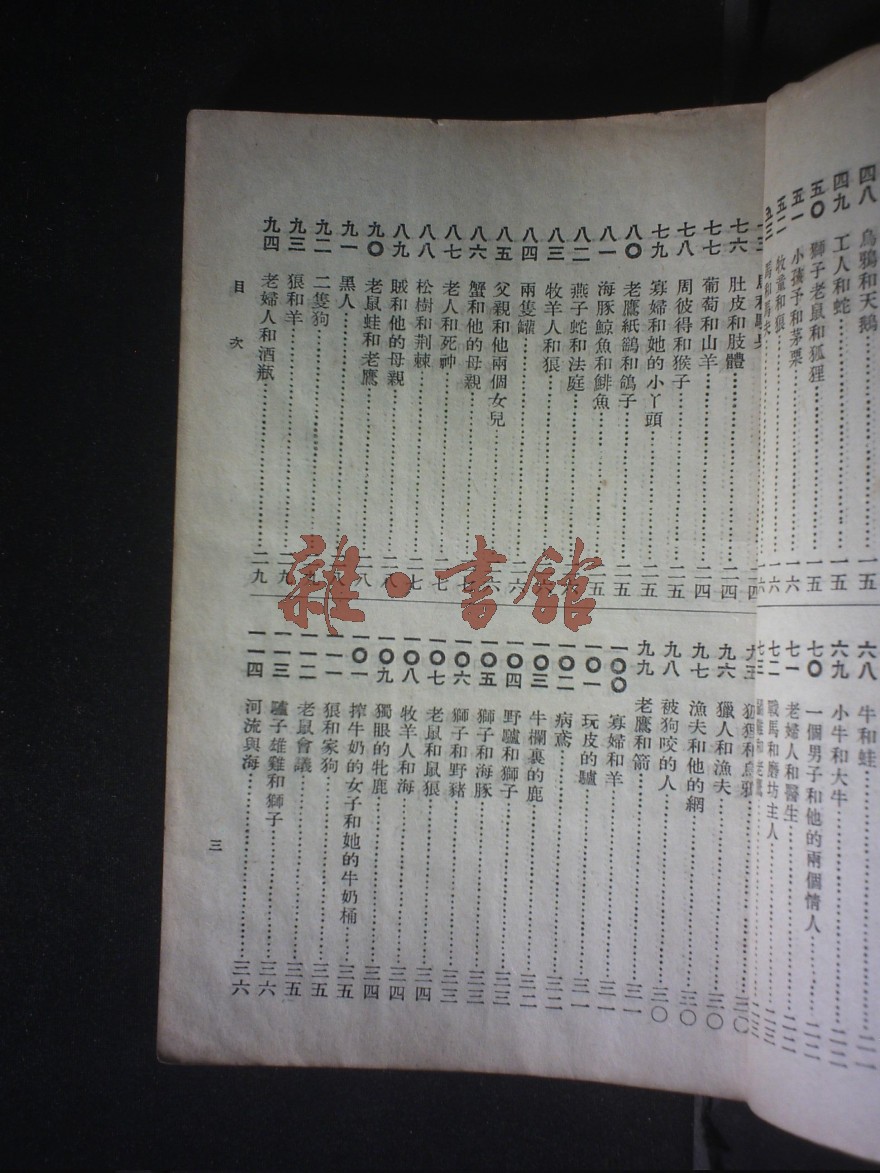 四八 烏鴉和天鵝……一五
四九 工人和蛇……一五
五〇 獅子老鼠和狐狸……一五
五一 小孩子和茅栗……一六
五二 牧童和狼……一六
六八 牛和蛙……二一
六九 小牛和大牛……二二
七〇 一個男子和他的兩個情人……二二
七一 老婦人和醫生……二二
七二 戰馬和磨坊主人……二三
七六 肚皮和肢體……二四
七七 葡萄和山羊……二四
七八 周彼得和猴子……二五
七九 寡婦和她的小丫頭……二五
八〇 老鷹紙鷂和鴿子……二五
八一 海豚鯨魚和鯡魚……二五
八二 燕子蛇和法庭……二六
八三 牧羊人和狼……二六
八四 兩隻罐……二六
八五 父親和他兩個女兒……二六
八六 蟹和他的母親……二七
八七 老人和死神……二七
八八 松樹和荆棘……二七
八九 賊和他的母親……二八
九〇 老鼠蛙和老鷹……二八
九一 黑人……二八
九二 二隻狗……二九
九三 狼和羊……二九
九四 老婦人和酒瓶……二九
九六 獵人和漁夫……三〇
九七 漁夫和他的網……三〇
九八 被狗咬的人……三〇
九九 老鷹和箭……三一
一〇〇 寡婦和羊……三一
一〇一 玩皮的驢……三一
一〇二 病鳶……三二
一〇三 牛欄裏的鹿……三二
一〇四 野驢和獅子……三三
一〇五 獅子和海豚……三三
一〇六 獅子和野豬……三三
一〇七 老鼠和鼠狼……三四
一〇八 牧羊人和海……三四
一〇九 獨眼的牝鹿……三四
一〇一 搾牛奶的女子和她的牛奶桶……三五
一一一 狼和家狗……三五
一一二 老鼠會議……三五
一一三 驢子雄雞和獅子……三六
一一四 河流與海……三六
目次
三
雜·書館